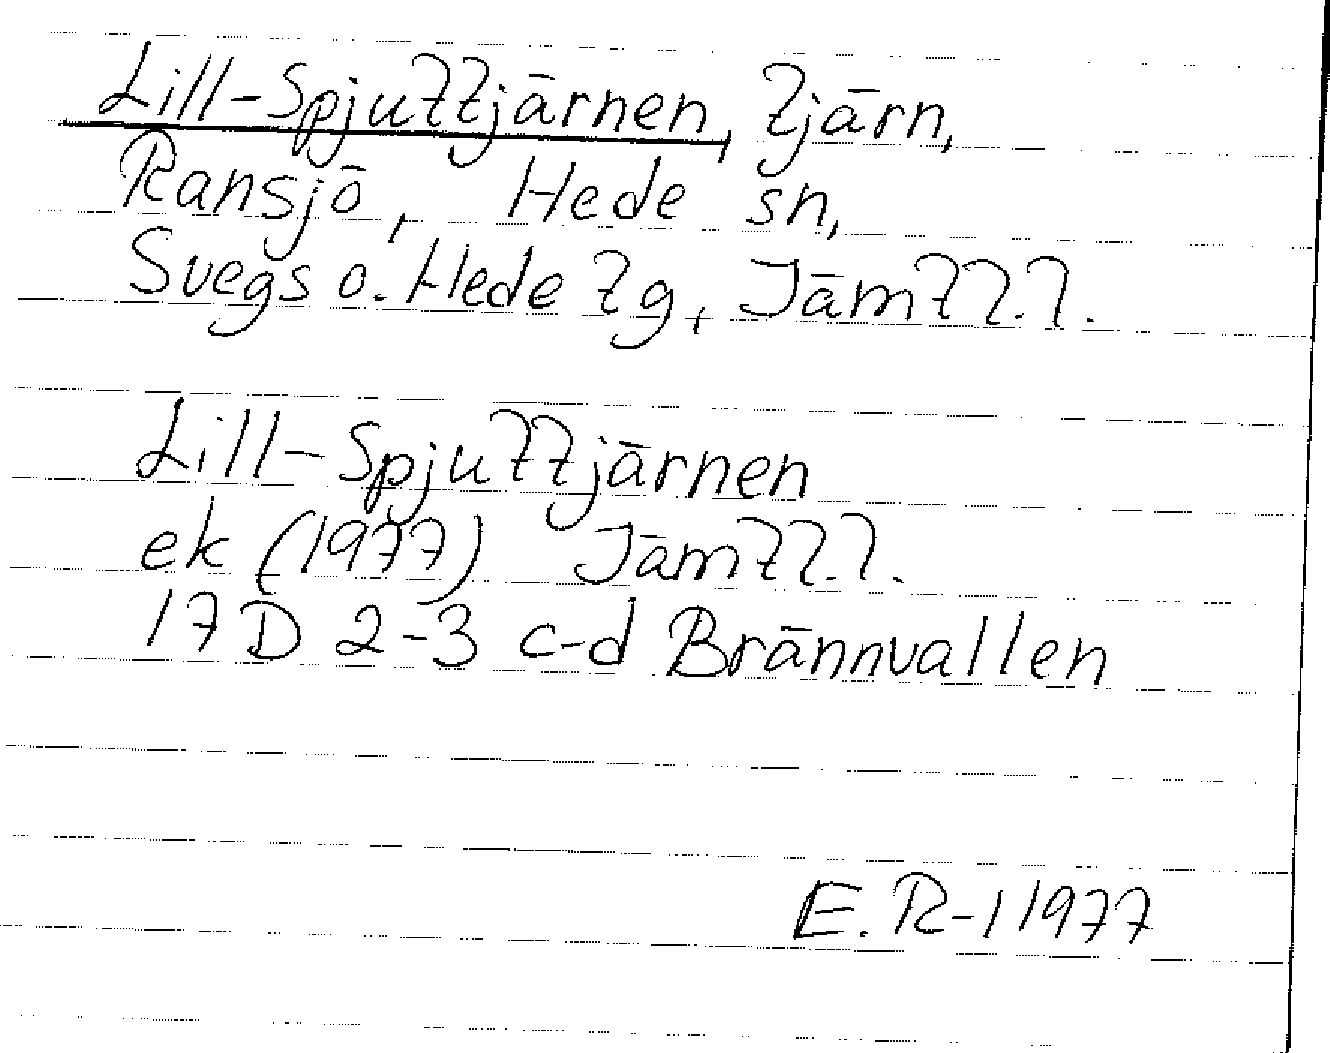 Lill-Spjuttjärnen, tjärn,
Ransjö, Hede sn,
Svegs o. Hede tg, Jämtl.l.
Lill-Spjuttjärnen
ek (1977) Jämtl.l.
17D 2-3 c-d Brännvallen
E. R-l 1977